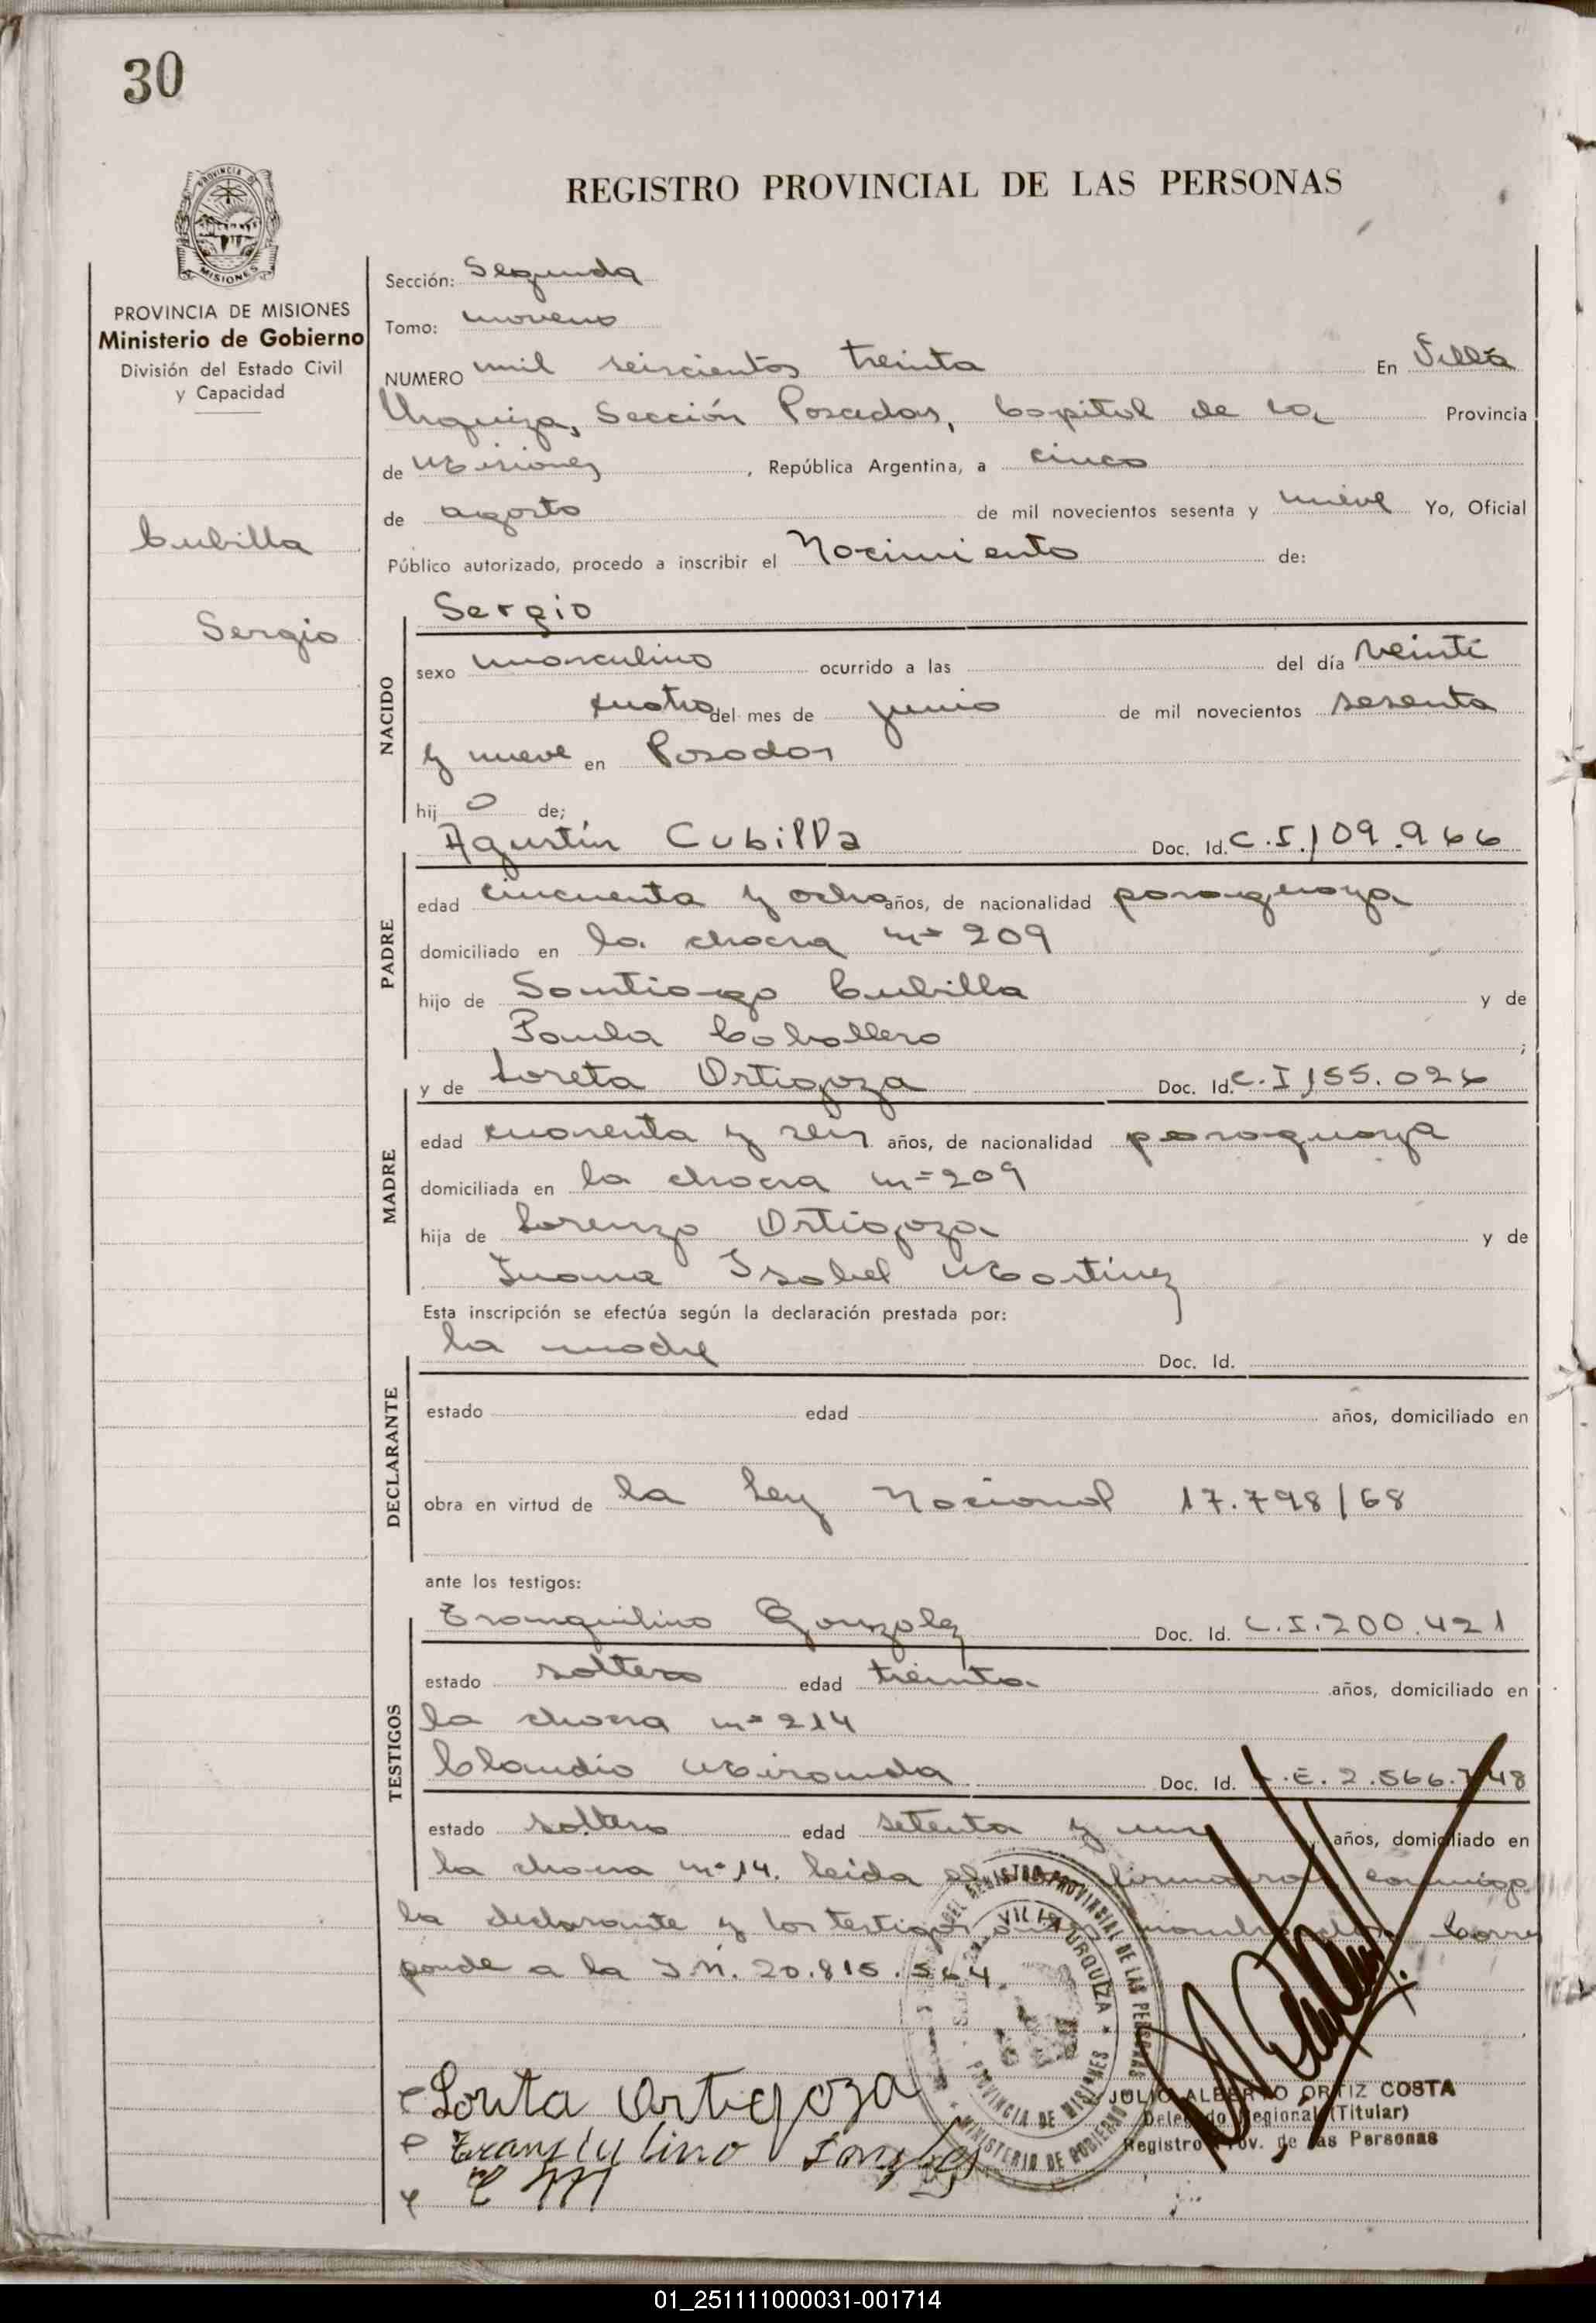 30
REGISTRO PROVINCIAL DE LAS PERSONAS
PROVINCIA DE
MISIONES
PROVINCIA DE MISIONES
Ministerio de Gobierno
División del Estado Civil
y Capacidad
Cubilla
Sergio
Sección: Segunda
Tomo: noveno
NUMERO mil seiscientos treinta En Villa
Urquiza, Sección Posadas, Capital de la Provincia
de Misiones, República Argentina, a cinco
de agosto de mil novecientos sesenta y nueve Yo, Oficial
Público autorizado, procedo a inscribir el Nacimiento de:
Sergio
NACIDO
sexo masculino ocurrido a las del día veinti
cuatro del mes de junio de mil novecientos sesenta
y nueve en Posadas
hijo de;
Agustín Cubilla Doc. Id. C.I. 109.966
PADRE
edad cincuenta y ocho años, de nacionalidad paraguaya
domiciliado en la chacra nº 209
hijo de Santiago Cubilla y de
Paula Caballero ;
y de Loreta Ortigoza Doc. Id. C.I 155.026
MADRE
edad cuarenta y seis años, de nacionalidad paraguaya
domiciliada en la chacra nº 209
hija de Lorenzo Ortigoza y de
Juana Isabel Martinez
Esta inscripción se efectúa según la declaración prestada por:
la madre Doc. Id.
DECLARANTE
estado edad años, domiciliado en
obra en virtud de la Ley Nacional 17.798/68
ante los testigos:
Tranquilino Gonzalez Doc. Id. C.I. 200.421
TESTIGOS
estado soltero edad treinta años, domiciliado en
la chacra nº 214
Claudio Miranda Doc. Id. .E. 2.566.748
estado soltero edad setenta y un años, domiciliado en
la chacra nº 14. leida firmaron conmigo
la declarante y los testigos nombrados. Corres
ponde a la I.M. 20.815.564.
REGISTRO PROVINCIAL DE LAS PERSONAS
VILLA URQUIZA
PROVINCIA DE MISIONES
MINISTERIO DE GOBIERNO
Lorita Ortigoza
JULIO ALBERTO ORTIZ COSTA
Delegado Regional (Titular)
Registro Prov. de las Personas
C M
01_251111000031-001714